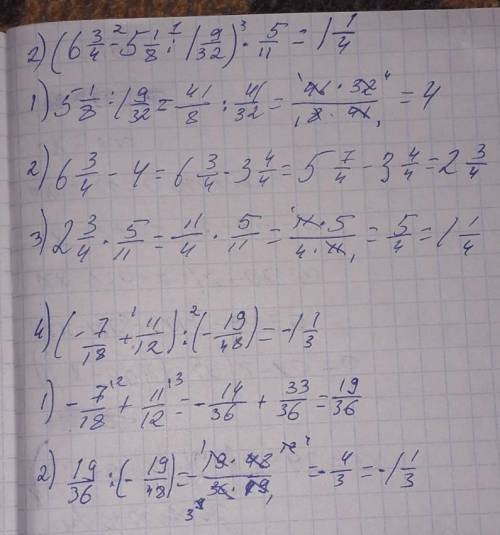 2) (6 3/4 - 5 1/8 : 1 9/32) · 5/11 = 1 1/4
1) 5 1/8 : 1 9/32 = 41/8 : 41/32 = 41 · 32 / 8 · 41 = 4
2) 6 3/4 - 4 = 6 3/4 - 3 4/4 = 5 7/4 - 3 4/4 = 2 3/4
3) 2 3/4 · 5/11 = 11/4 · 5/11 = 11 · 5 / 4 · 11 = 5/4 = 1 1/4
4) (- 7/18 + 11/12) : (- 19/48) = -1 1/3
1) - 7/18 + 11/12 = - 14/36 + 33/36 = 19/36
2) 19/36 : (- 19/48) = - 19 · 48 / 36 · 19 = - 4/3 = -1 1/3